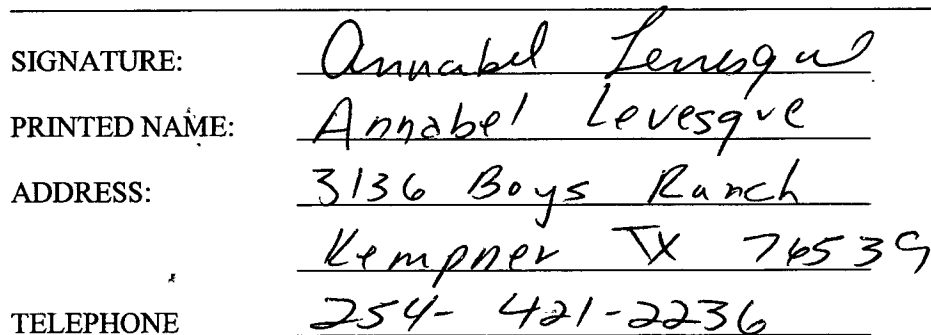 SIGNATURE: Annabel Levesque
PRINTED NAME: Annabel Levesque
ADDRESS: 3136 Boys Ranch
Kempner TX 76539
TELEPHONE 254-421-2236